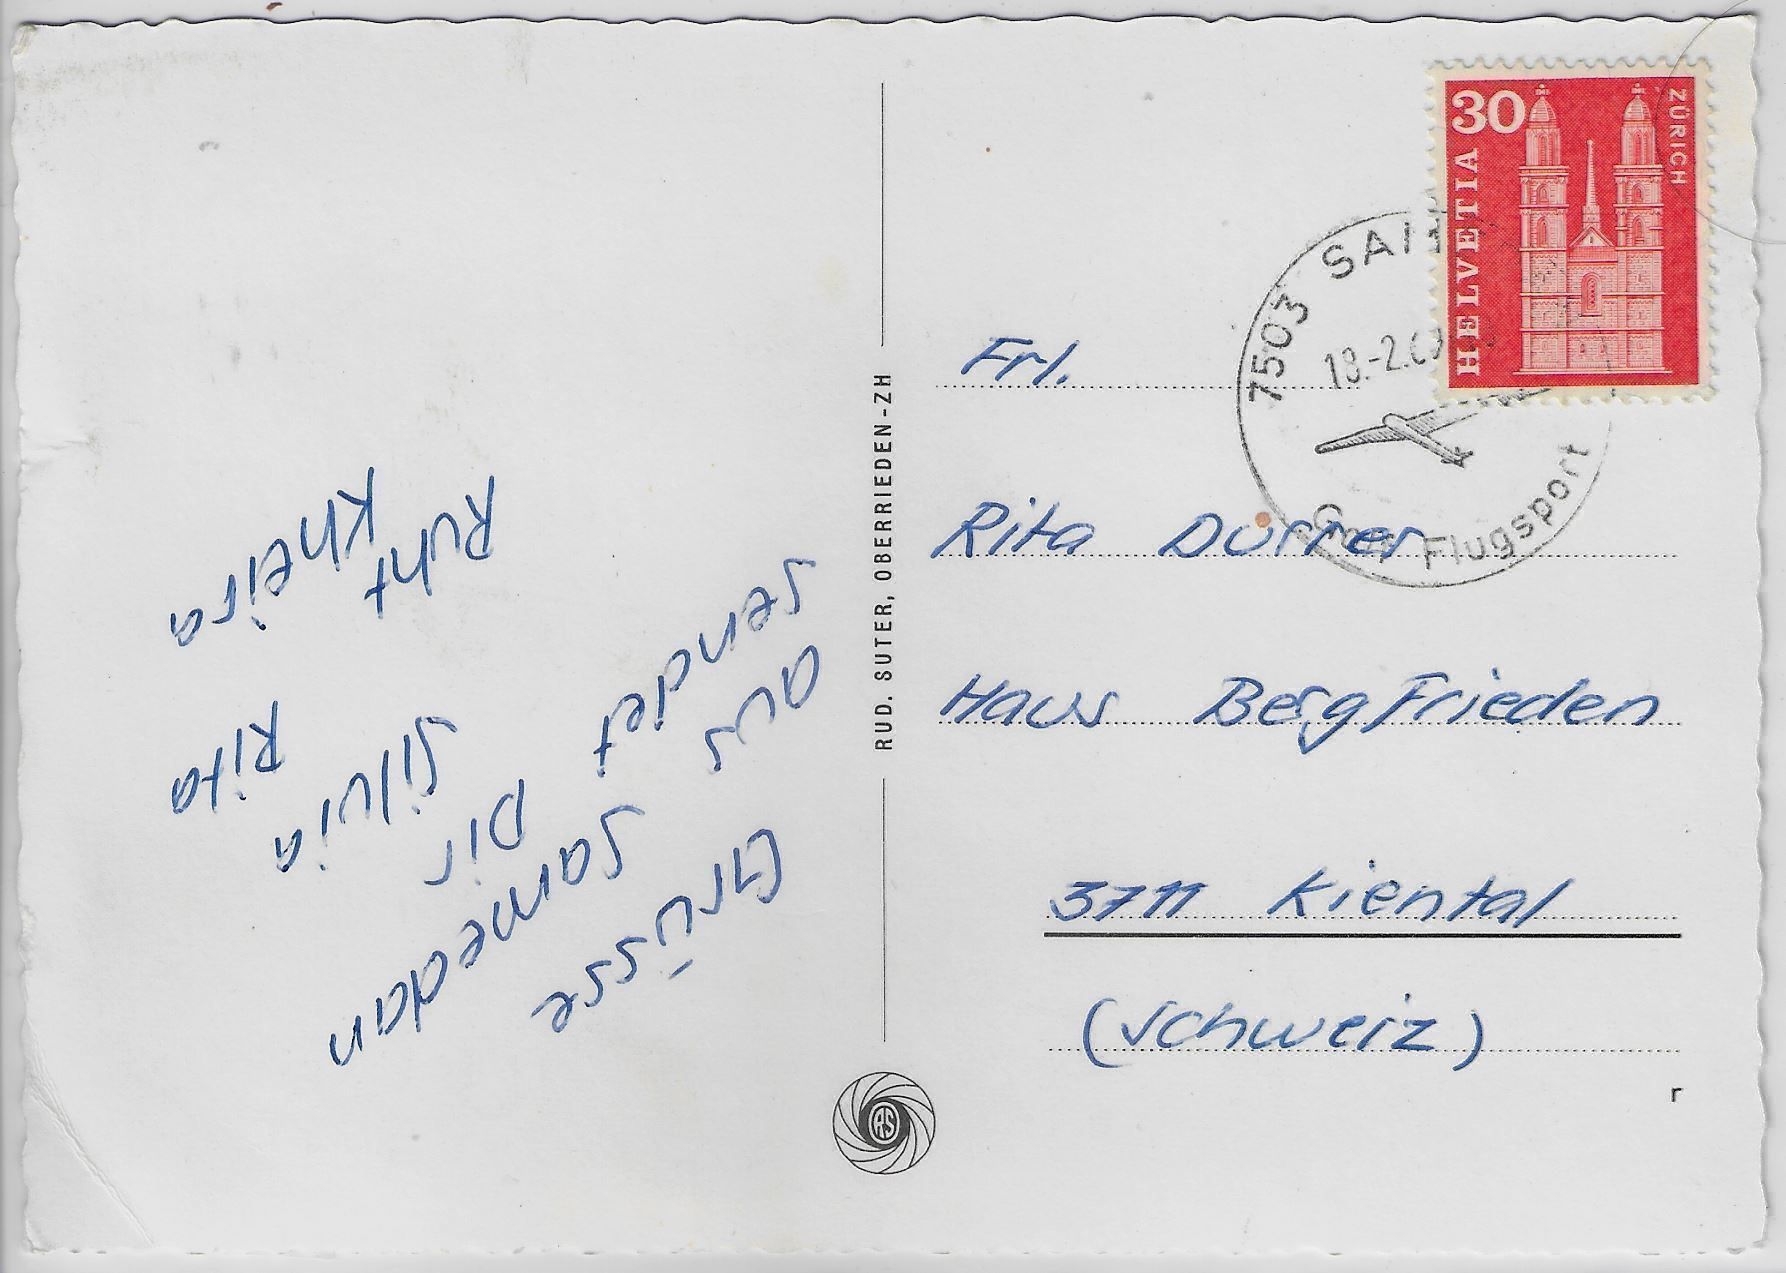 Grüsse
aus Samedan
sendet Dir
Silvia
Rita
Ruht
Kheira
RUD. SUTER, OBERRIEDEN-ZH
RS
30
HELVETIA
ZÜRICH
7503
18.-2.6
Flugsport
Frl.
Rita Durrer
Haus Bergfrieden
3711 Kiental
(Schweiz)
r